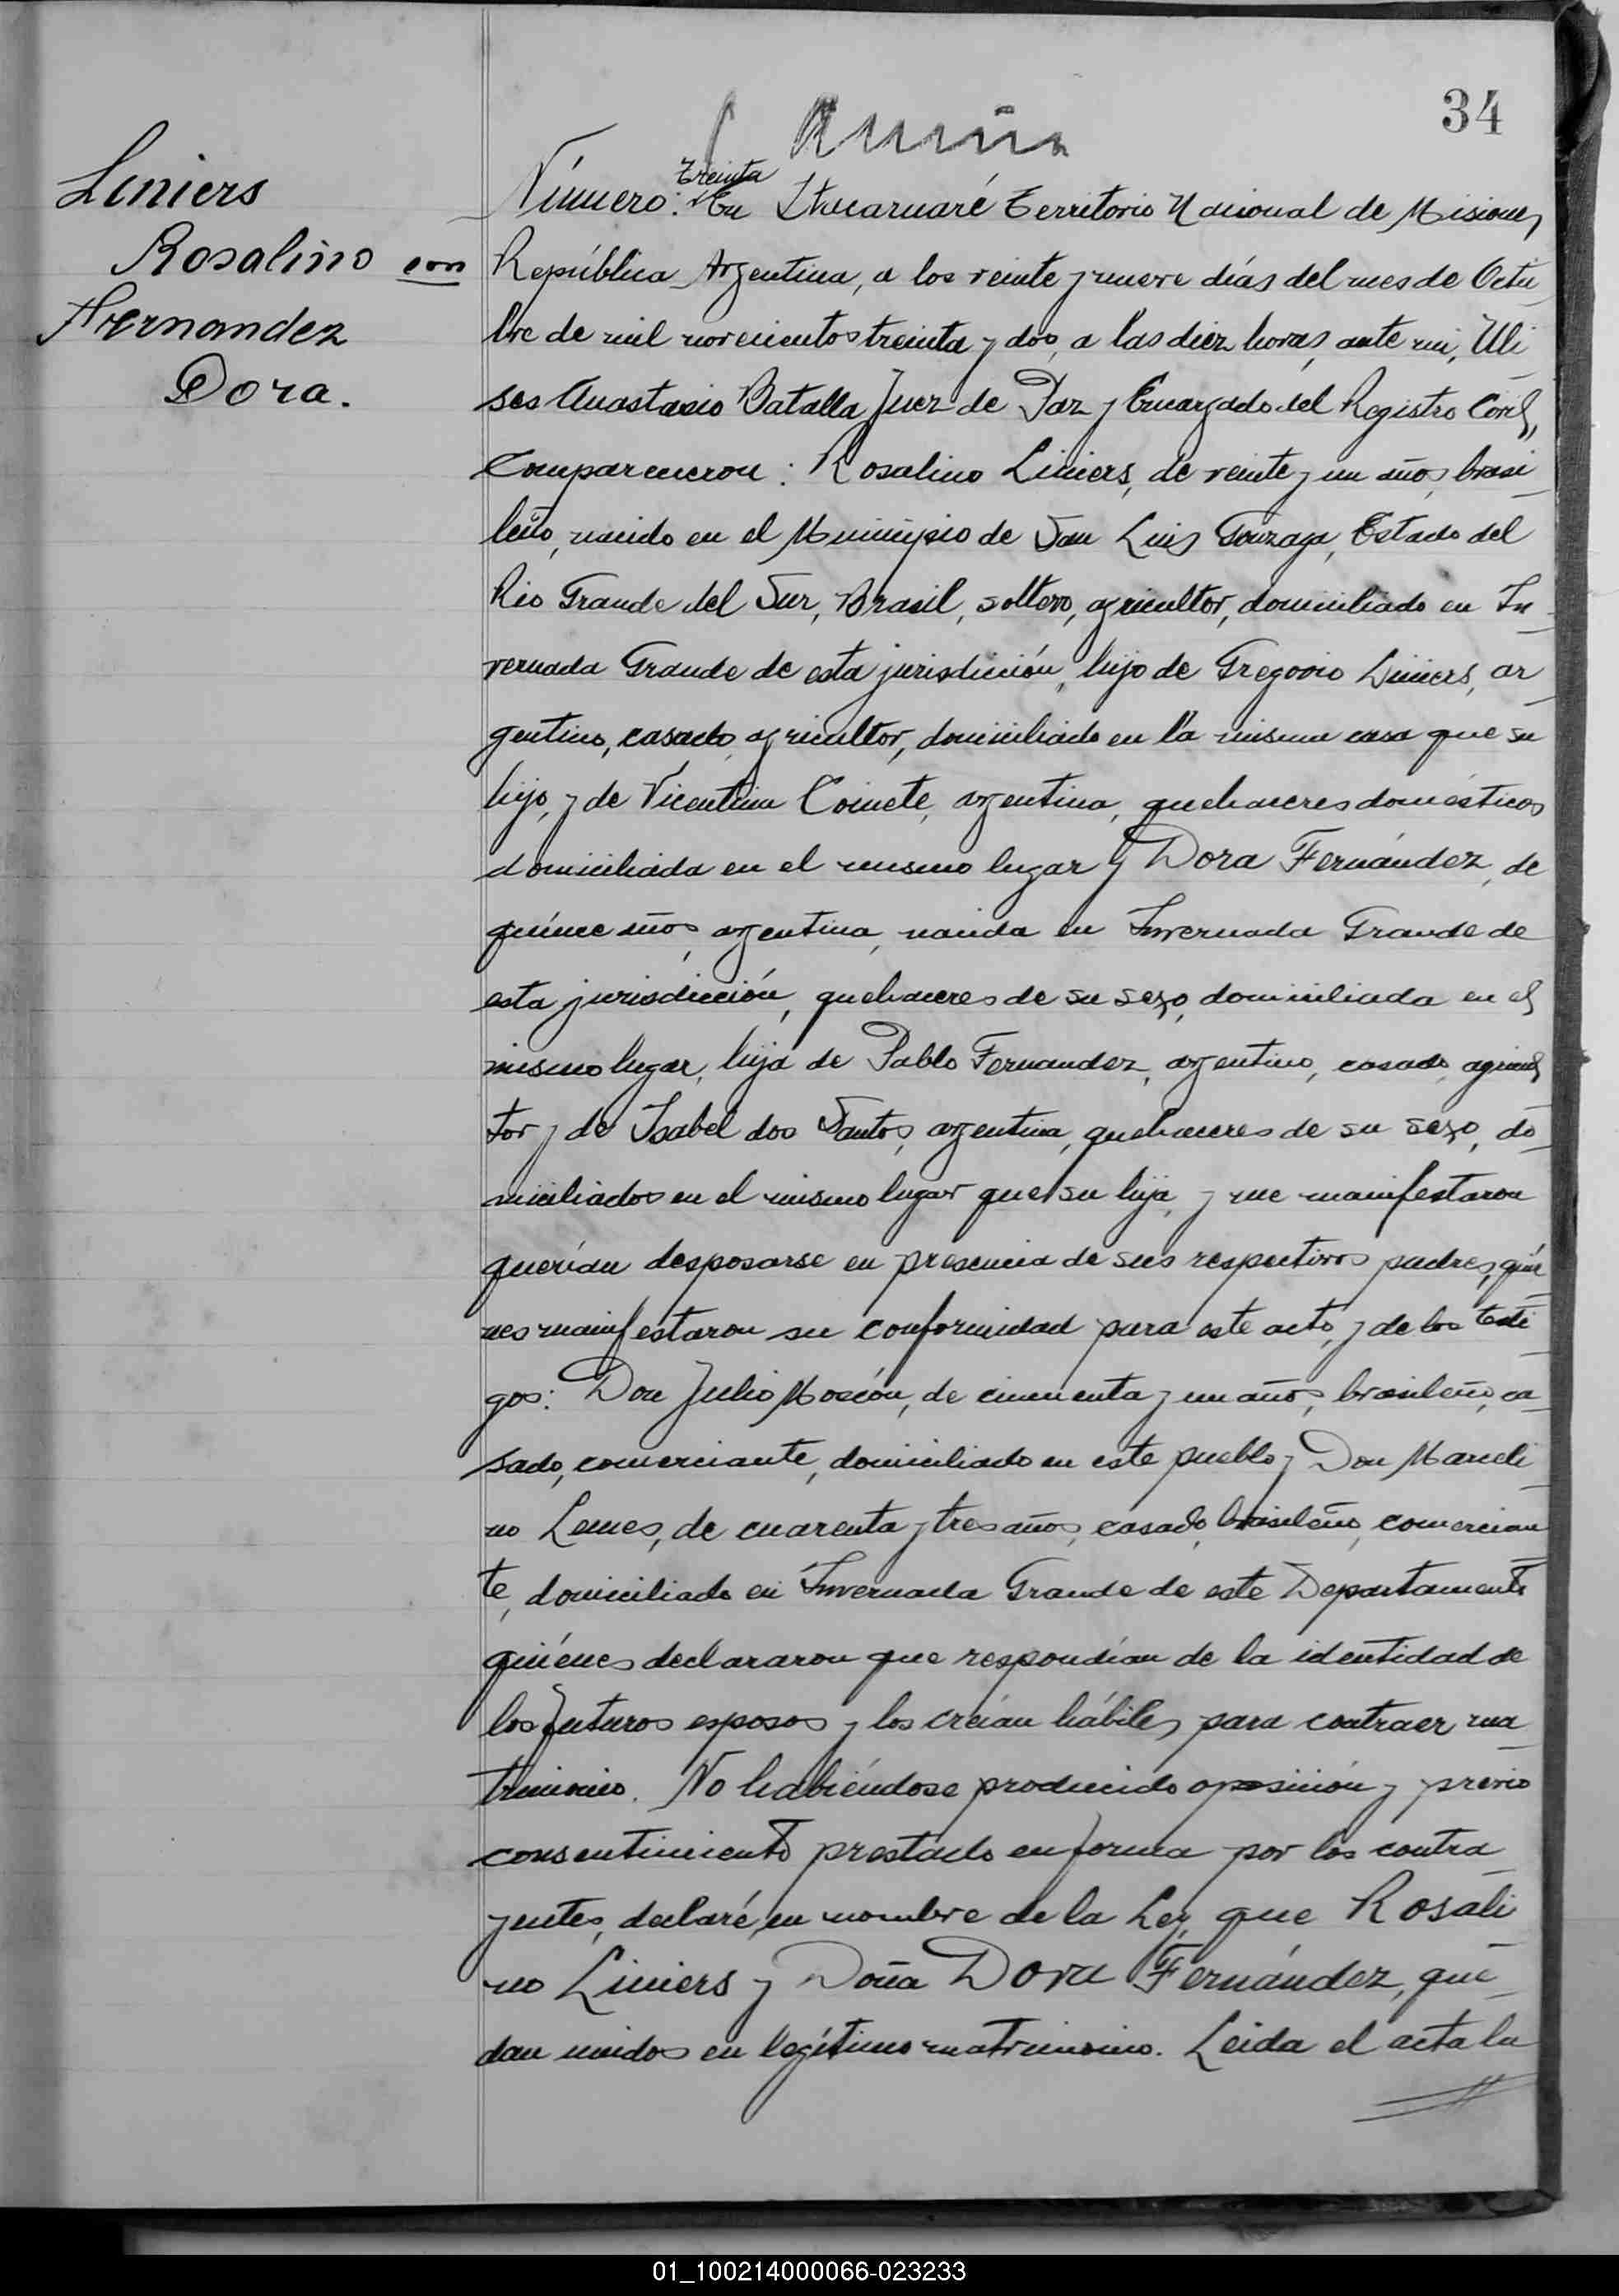 34
Liniers
Rosalino con
Hernandez
Dora.
treinta
Número: En Itacaruaré Territorio Nacional de Misiones
República Argentina, a los veinte y nueve días del mes de Octu
bre de mil novecientos treinta y dos, a las diez horas, ante mi, Uli
ses Anastasio Batalla Juez de Paz y Encargado del Registro Civil,
Comparecieron: Rosalino Liniers, de veinte y un años, brasi
leño, nacido en el Municipio de San Luis Gonzaga, Estado del
Rio Grande del Sur, Brasil, soltero, agricultor, domiciliado en In
vernada Grande de esta jurisdición, hijo de Gregorio Liniers, ar
gentino, casado, agricultor, domiciliado en la misma casa que su
hijo, y de Vicentina Coinete, argentina, quehaceres domésticos
domiciliada en el mismo lugar y Dora Fernández, de
quince años, argentina, nacida en Invernada Grande de
esta jurisdicción, quehaceres de su sexo, domiciliada en el
mismo lugar, hija de Pablo Fernandez, argentino, casado, agricul
tor y de Isabel dos Santos, argentina, quehaceres de su sexo, do
miciliados en el mismo lugar que su hija, y me manifestaron
querían desposarse en presencia de sus respectivos padres, quie
nes manifestaron su conformidad para este acto, y de los testi
gos: Don Julio Moscón, de cincuenta y un años, brasileño, ca
sado, comerciante, domiciliado en este pueblo y Don Marceli
no Lemes, de cuarenta y tres años, casado, brasileño, comercian
te, domiciliado en Invernada Grande de este Departamento
quiénes declararon que respondían de la identidad de
los futuros esposos y los creían hábiles para contraer ma
trimonio. No habiéndose producido oposición y previo
consentimiento prestado en forma por los contra
yentes, declaré, en nombre de la Ley, que Rosali
no Liniers y Doña Dora Fernández, que
dan unidos en legítimo matrimonio. Leida el acta la
01_100214000066-023233